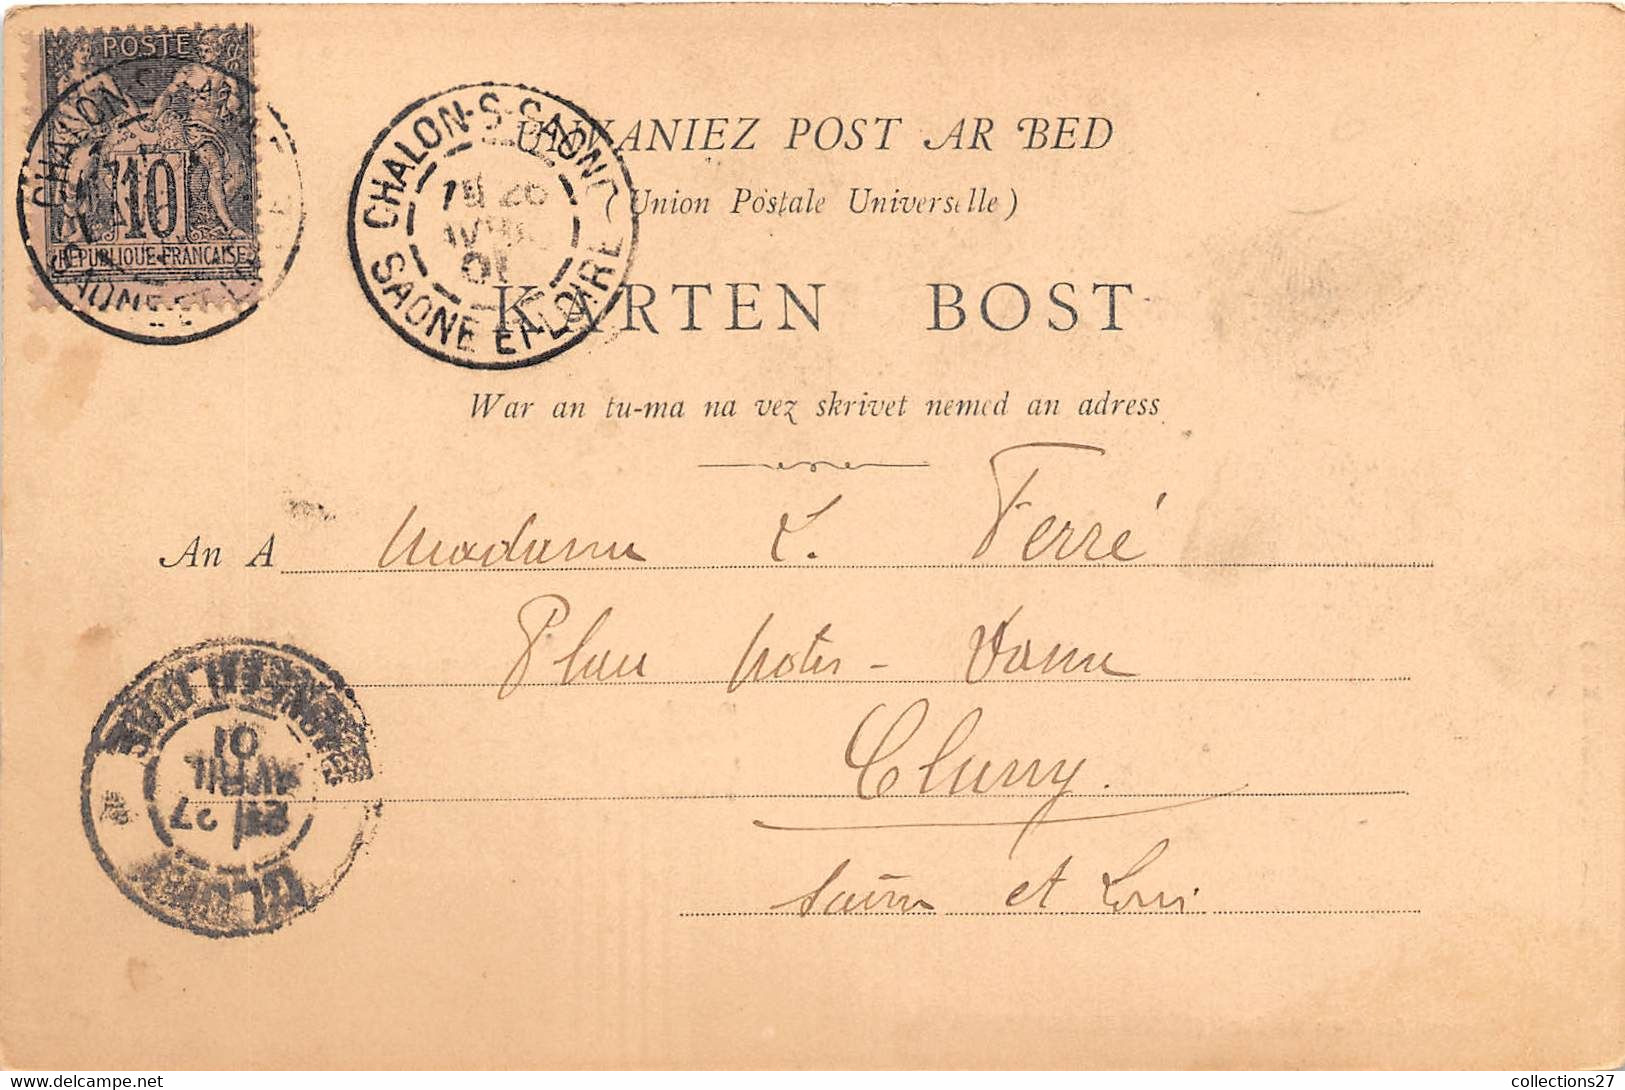 POSTE
10
RÉPUBLIQUE FRANÇAISE
CHALON-S-SAONE
26
AVRIL
01
SAONE ET LOIRE
UNVANIEZ POST AR BED
(Union Postale Universelle)
KARTEN BOST
War an tu-ma na vez skrivet nemed an adress
An A Madame L. Ferré
Place Notre-Dame
Cluny.
Saône et Loire
CLUNY
27
AVRIL
01
SAONE ET LOIRE
collections27